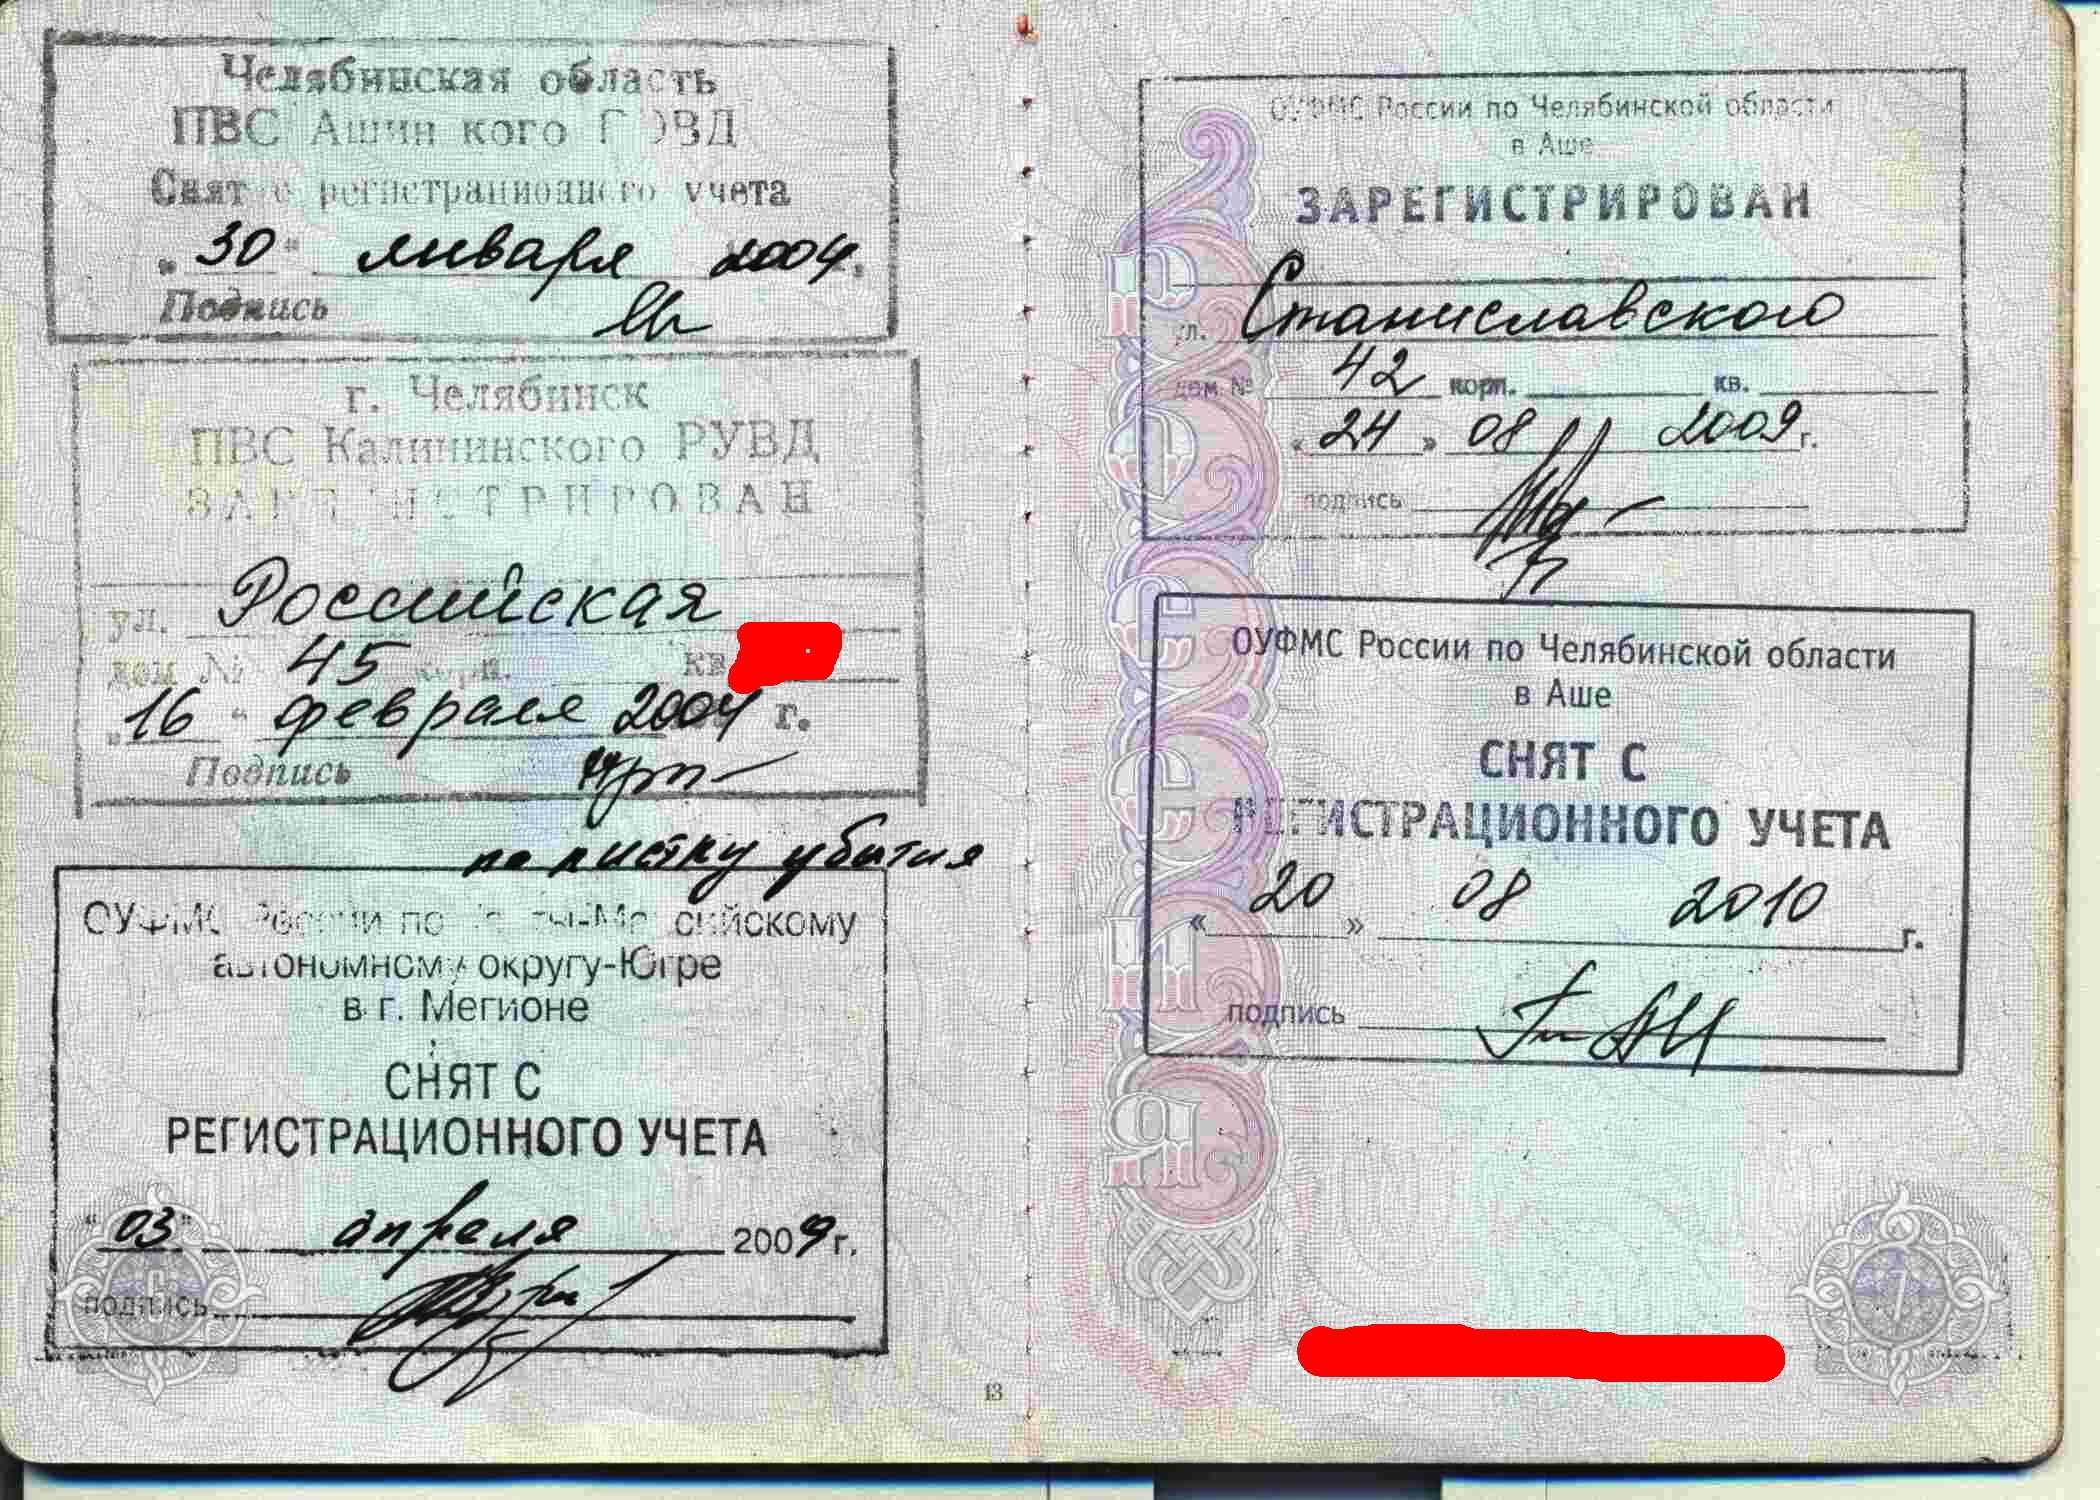 Челябинская область
ПВС Ашин кого Г ОВД
Снят с регистрационного учета
„ 30 " января 2004г.
Подпись
г. Челябинск
ПВС Калининского РУВД
ЗАРЕГИСТРИРОВАН
ул. Российская
дом № 45 корп. кв
„ 16 " февраля 2004 г.
Подпись
по листку убытия
ОУФМС России по Ханты-Мансийскому
автономному округу-Югре
в г. Мегионе
СНЯТ С
РЕГИСТРАЦИОННОГО УЧЕТА
"03" апреля 2009г.
подпись
6
13
ОУФМС России по Челябинской области
в Аше
ЗАРЕГИСТРИРОВАН
ул. Станиславского
дом № 42 корп. кв.
« 24 » 08 2009г.
подпись
ОУФМС России по Челябинской области
в Аше
СНЯТ С
РЕГИСТРАЦИОННОГО УЧЕТА
« 20 » 08 2010 г.
подпись
7